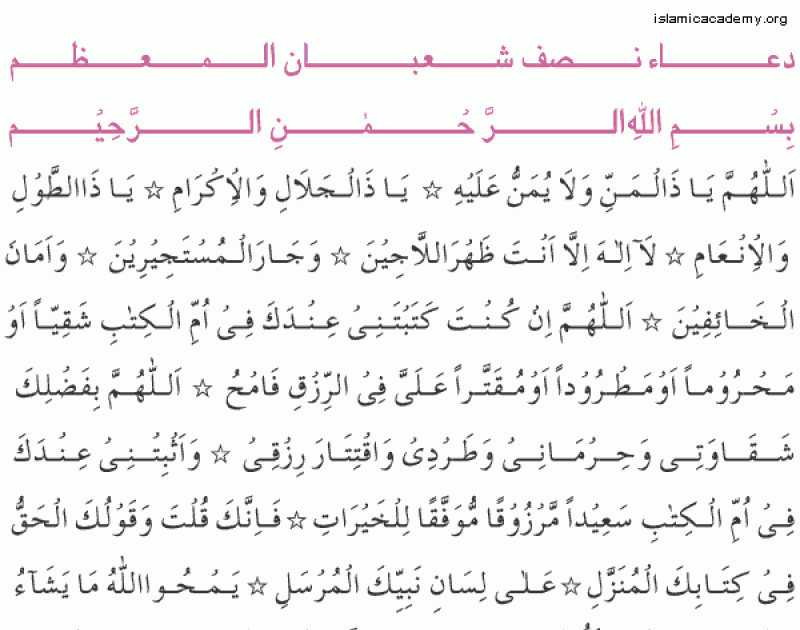 islamicacademy.org
دعاء نصف شعبان المعظم
بِسْمِ اللهِ الرَّحْمٰنِ الرَّحِيْمِ
اَللّٰهُمَّ يَا ذَالْمَنِّ وَلَا يُمَنُّ عَلَيْهِ ☆ يَا ذَالْجَلَالِ وَالْاِكْرَامِ ☆ يَا ذَاالطَّوْلِ
وَالْاِنْعَامِ ☆ لَآاِلٰهَ اِلَّا اَنْتَ ظَهْرَاللَّاجِيْنَ ☆ وَجَارَالْمُسْتَجِيْرِيْنَ ☆ وَاَمَانَ
الْخَائِفِيْنَ ☆ اَللّٰهُمَّ اِنْ كُنْتَ كَتَبْتَنِيْ عِنْدَكَ فِيْ اُمِّ الْكِتٰبِ شَقِيّاً اَوْ
مَحْرُوْماً اَوْمَطْرُوْداً اَوْمُقَتَّراً عَلَىَّ فِى الرِّزْقِ فَامْحُ ☆ اَللّٰهُمَّ بِفَضْلِكَ
شَقَاوَتِى وَحِرْمَانِىْ وَطَرْدِىْ وَاقْتِتَارَ رِزْقِىْ ☆ وَاَثْبِتْنِىْ عِنْدَكَ
فِىْ اُمِّ الْكِتٰبِ سَعِيْداً مَّرْزُوْقًا مُّوَفَّقًا لِلْخَيْرَاتِ ☆ فَاِنَّكَ قُلْتَ وَقَوْلُكَ الْحَقُّ
فِىْ كِتَابِكَ الْمُنَزَّلِ ☆ عَلٰى لِسَانِ نَبِيِّكَ الْمُرْسَلِ ☆ يَمْحُوااللهُ مَا يَشَآءُ